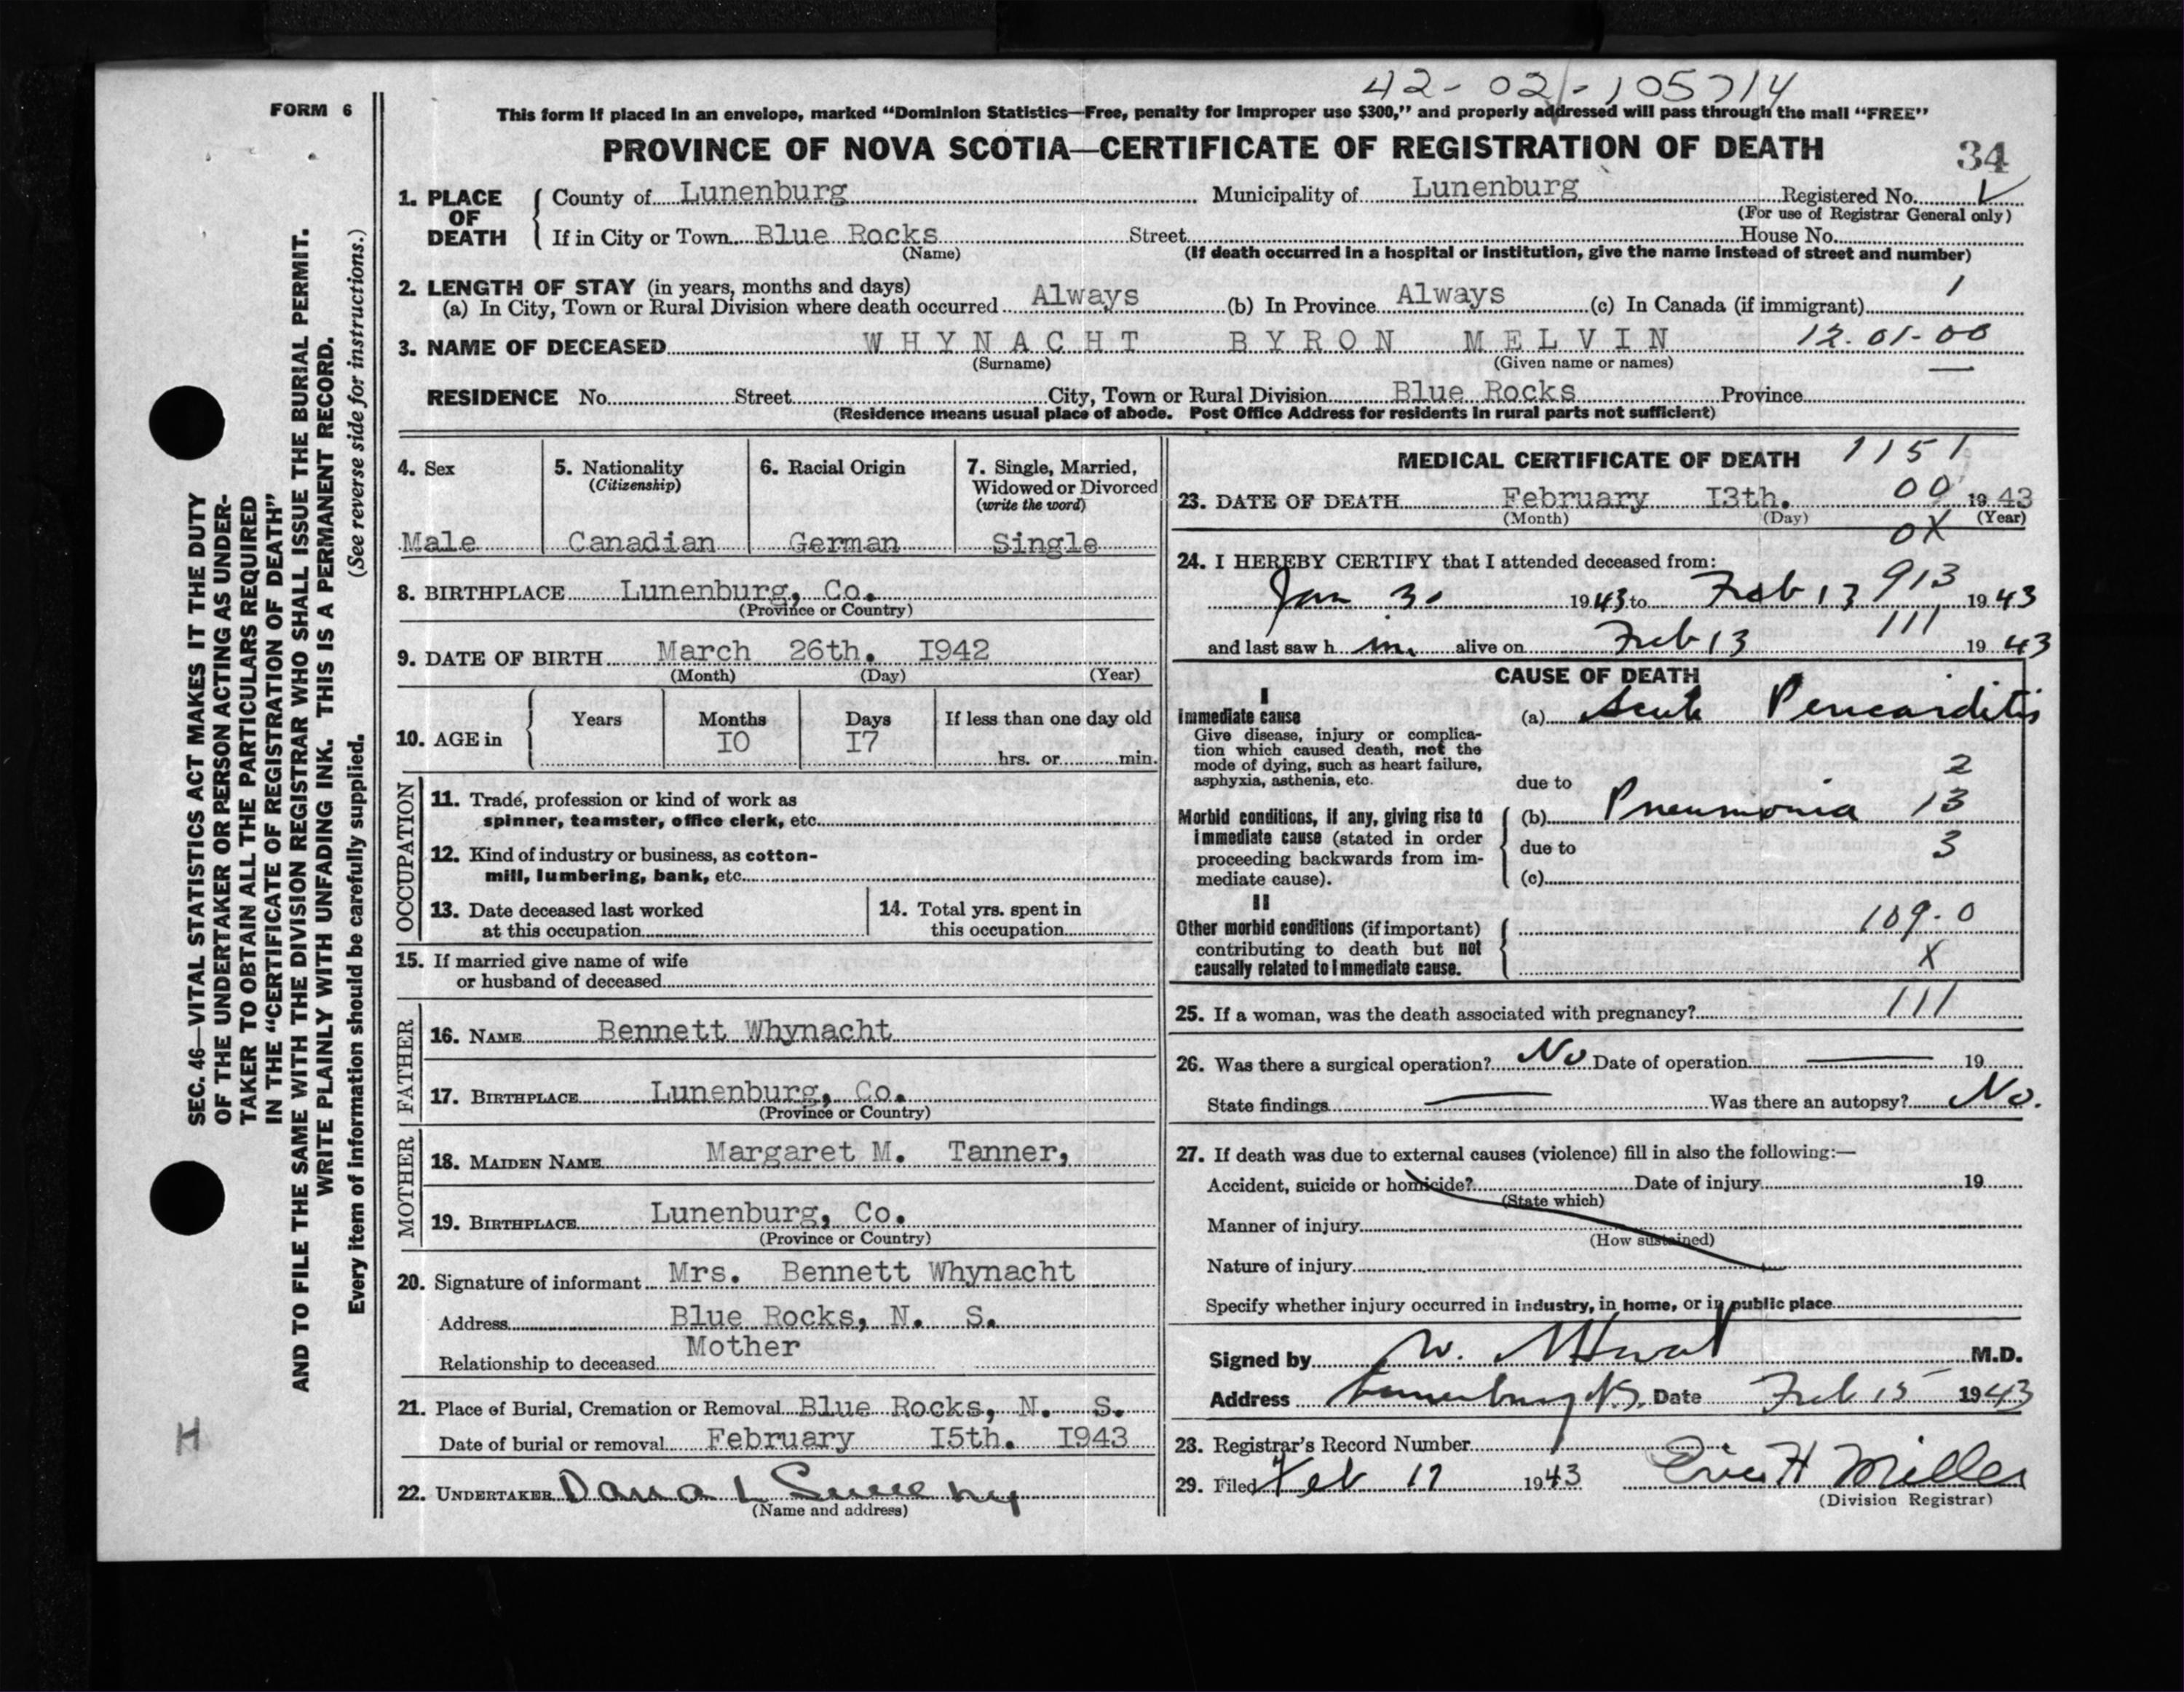 42-02-105714
FORM 6
This form if placed in an envelope, marked “Dominion Statistics—Free, penalty for improper use $300,” and properly addressed will pass through the mail “FREE”
PROVINCE OF NOVA SCOTIA—CERTIFICATE OF REGISTRATION OF DEATH
34
1. PLACE OF DEATH
County of Lunenburg Municipality of Lunenburg Registered No.
(For use of Registrar General only)
If in City or Town Blue Rocks Street House No.
(Name) (If death occurred in a hospital or institution, give the name instead of street and number)
2. LENGTH OF STAY (in years, months and days)
(a) In City, Town or Rural Division where death occurred Always (b) In Province Always (c) In Canada (if immigrant) 1
3. NAME OF DECEASED WHYNACHT BYRON MELVIN 12.01-00
(Surname) (Given name or names)
RESIDENCE No. Street City, Town or Rural Division Blue Rocks Province
(Residence means usual place of abode. Post Office Address for residents in rural parts not sufficient)
4. Sex
Male
5. Nationality
(Citizenship)
Canadian
6. Racial Origin
German
7. Single, Married,
Widowed or Divorced
(write the word)
Single
8. BIRTHPLACE Lunenburg, Co.
(Province or Country)
9. DATE OF BIRTH March 26th. I942
(Month) (Day) (Year)
10. AGE in
Years Months Days If less than one day old
I0 I7
hrs. or min.
OCCUPATION
11. Trade, profession or kind of work as
spinner, teamster, office clerk, etc.
12. Kind of industry or business, as cotton-
mill, lumbering, bank, etc.
13. Date deceased last worked
at this occupation
14. Total yrs. spent in
this occupation
15. If married give name of wife
or husband of deceased
FATHER
16. NAME Bennett Whynacht
17. BIRTHPLACE Lunenburg, Co.
(Province or Country)
MOTHER
18. MAIDEN NAME Margaret M. Tanner,
19. BIRTHPLACE Lunenburg, Co.
(Province or Country)
20. Signature of informant Mrs. Bennett Whynacht
Address Blue Rocks, N. S.
Relationship to deceased Mother
21. Place of Burial, Cremation or Removal Blue Rocks, N. S.
Date of burial or removal February I5th. I943
22. UNDERTAKER Dana L Sweeny
(Name and address)
MEDICAL CERTIFICATE OF DEATH 1151
23. DATE OF DEATH February I3th. 00 1943
(Month) (Day) (Year)
0X
24. I HEREBY CERTIFY that I attended deceased from:
Jan 30 1943 to Feb 13 913 1943
and last saw h im alive on Feb 13 111 1943
CAUSE OF DEATH
I
Immediate cause
Give disease, injury or complica-
tion which caused death, not the
mode of dying, such as heart failure,
asphyxia, asthenia, etc.
(a) Acute Pericarditis
2
due to
Morbid conditions, if any, giving rise to
immediate cause (stated in order
proceeding backwards from im-
mediate cause).
(b) Pneumonia 13
due to 3
(c)
II
Other morbid conditions (if important)
contributing to death but not
causally related to immediate cause.
109-0
X
25. If a woman, was the death associated with pregnancy? 111
26. Was there a surgical operation? No Date of operation 19
State findings Was there an autopsy? No.
27. If death was due to external causes (violence) fill in also the following:—
Accident, suicide or homicide? Date of injury 19
(State which)
Manner of injury
(How sustained)
Nature of injury
Specify whether injury occurred in industry, in home, or in public place
Signed by W. M.D.
Address Lunenburg N.S. Date Feb 15 1943
28. Registrar's Record Number
29. Filed Feb 17 1943 Eric H Miller
(Division Registrar)
SEC. 46—VITAL STATISTICS ACT MAKES IT THE DUTY
OF THE UNDERTAKER OR PERSON ACTING AS UNDER-
TAKER TO OBTAIN ALL THE PARTICULARS REQUIRED
IN THE “CERTIFICATE OF REGISTRATION OF DEATH”
AND TO FILE THE SAME WITH THE DIVISION REGISTRAR WHO SHALL ISSUE THE BURIAL PERMIT.
WRITE PLAINLY WITH UNFADING INK. THIS IS A PERMANENT RECORD.
Every item of information should be carefully supplied. (See reverse side for instructions.)
H